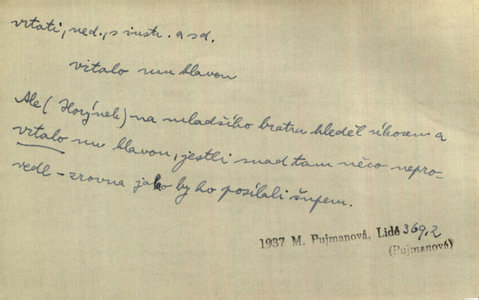 vrtati, ned., s instr. a sd.
vrtalo mu hlavou
Ale (Horýnek) na mladšího bratra hleděl úkosem a
vrtalo mu hlavou, jestli snad tam něco nepro-
vedl – zrovna jako by ho posílali šupem.
1937 M. Pujmanová, Lidé 369,2
(Pujmanová)